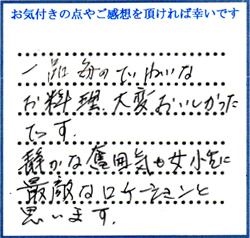 お気付きの点やご感想を頂ければ幸いです
一品毎のていねいな
お料理、大変おいしかった
です。
静かな雰囲気も
最敵なロケーションと
思います。